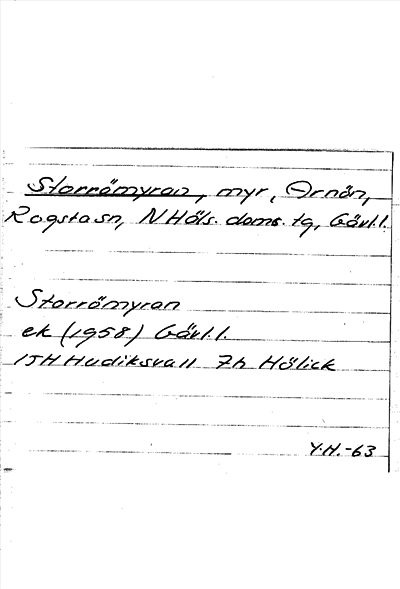 Storrömyran, myr, Arnön,
Rogsta sn, N Häls. doms. tg, Gävl.l.
Storrömyran
ek (1958) Gävl.l.
15H Hudiksvall 7h Hölick
Y.H.-63